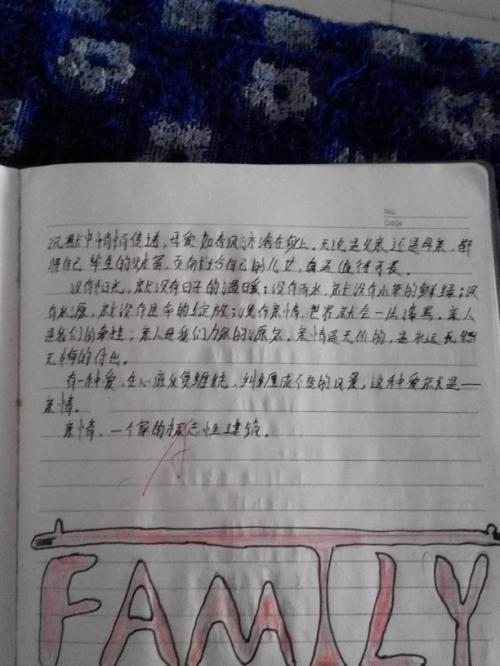 No.
Date
沉默中悄悄传递，母爱如春风沐浴在身上，无论是父亲还是母亲，都
将自己毕生的财富，贡献给自己的儿女，真是值得可畏。
没有阳光，就没有日子的温暖；没有雨水，就没有小草的鲜绿；没
有水源，就没有生命的绽放；没有亲情，世界就会一片漆黑。亲人
是我们的牵挂；亲人是我们力量的源泉，亲情是无价的，是永远
无悔的付出。
有一种爱，在心底反复缠绕，纠缠成不变的风景，这种爱就是——
亲情。
亲情，一个家的标志性建筑。
FAMILY